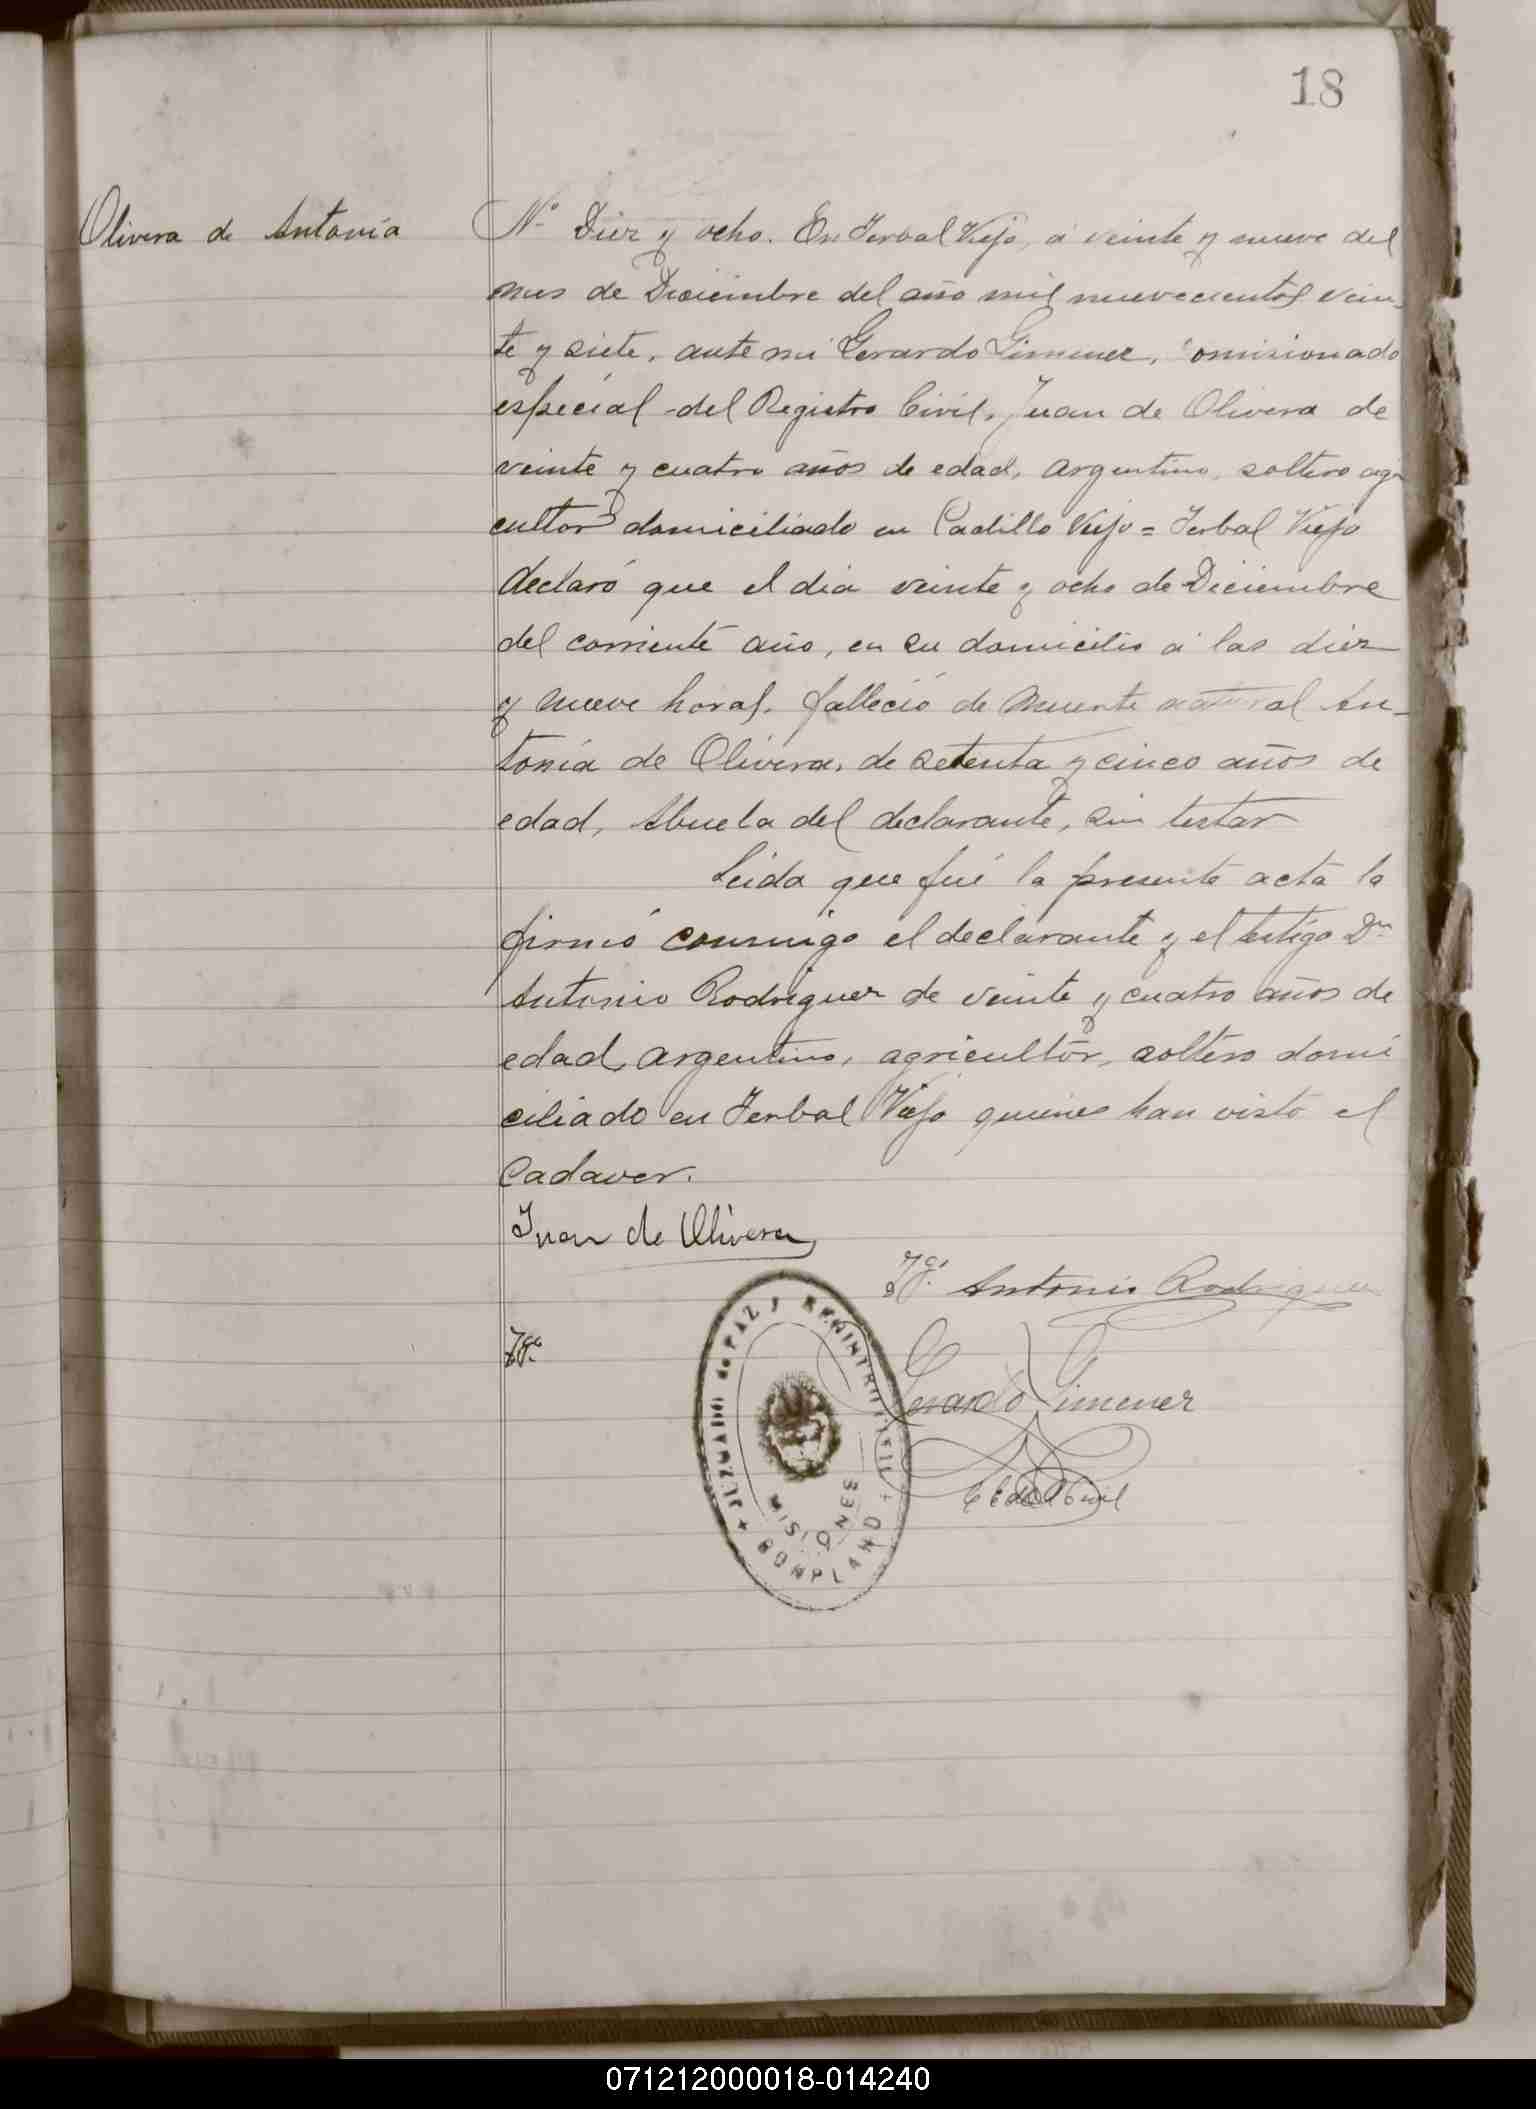 18
Olivera de Antonia
Nº Diez y ocho. En Yerbal Viejo, a veinte y nueve del
mes de Diciembre del año mil nuevecientos vein-
te y siete, ante mi Gerardo Gimenez, Comisionado
especial del Registro Civil, Juan de Olivera de
veinte y cuatro años de edad, argentino, soltero agri
cultor domiciliado en Cadillo Viejo = Yerbal Viejo
declaró que el dia veinte y ocho de Diciembre
del corriente año, en su domicilio a las diez
y nueve horas, falleció de muerte natural An-
tonia de Olivera, de setenta y cinco años de
edad, Abuela del declarante, sin testar
Leida que fué la presente acta la
firmó conmigo el declarante y el testigo Dn
Antonio Rodriguez de veinte y cuatro años de
edad, argentino, agricultor, soltero domi
ciliado en Yerbal Viejo quienes han visto el
Cadaver.
Juan de Olivera
Tgo. Antonio Rodriguez
Tgo.
Gerardo Gimenez
JUZGADO de PAZ y REGISTRO CIVIL
MISIONES
BONPLAND
071212000018-014240